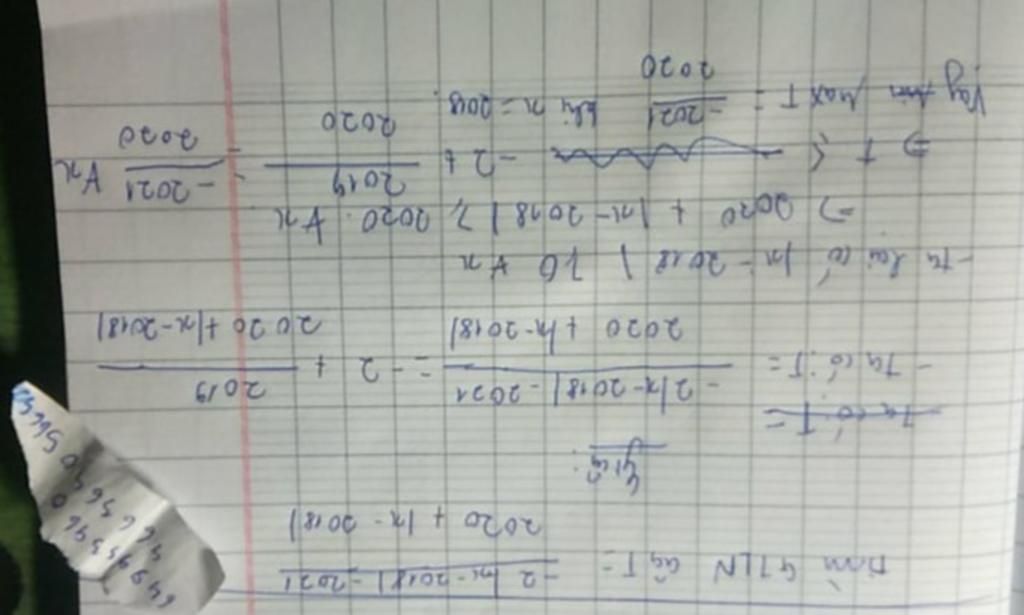 Tìm GTLN của T = -2|x-2018| - 2021 / 2020 + |x-2018|
Giải:
Ta có T =
- Ta có: T = -2|x-2018| - 2021 / 2020 + |x-2018| = -2 + 2019 / 2020 + |x-2018|
- Ta lại có |x-2018| ≥ 0 ∀x
=> 2020 + |x-2018| ≥ 2020 ∀x
=> T ≤ -2 + 2019/2020 = -2021/2020 ∀x
Vậy Max T = -2021/2020 khi x = 2018.